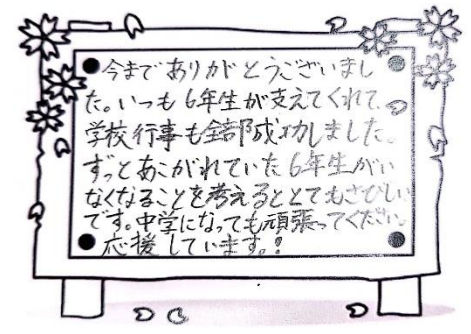 今までありがとうございまし
た。いつも6年生が支えてくれて、
学校行事も全部成功しました。
ずっとあこがれていた6年生がい
なくなることを考えるととてもさびしい
です。中学になっても頑張ってください。
応援しています。!